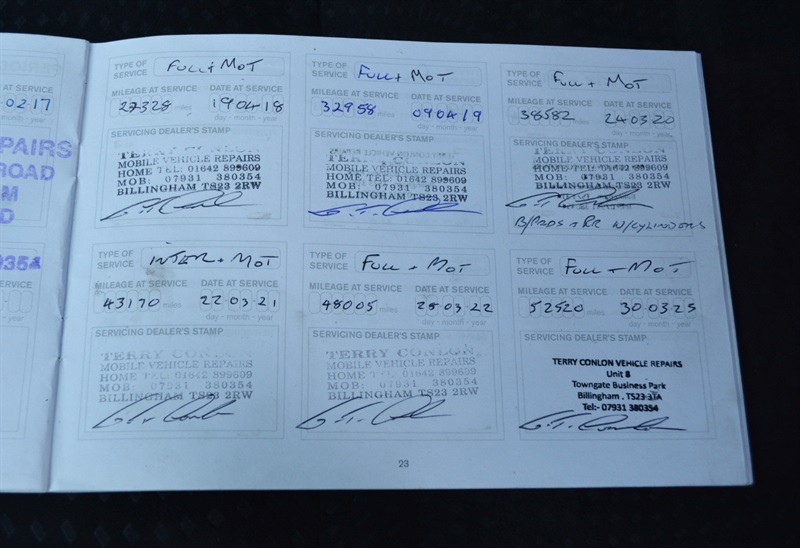 02 17
PAIRS
ROAD
M
D
935A
TYPE OF SERVICE Full + MOT
MILEAGE AT SERVICE DATE AT SERVICE
27328 miles 19 04 18
day - month - year
SERVICING DEALER'S STAMP
TERRY CONLON
MOBILE VEHICLE REPAIRS
HOME TEL: 01642 899609
MOB: 07931 380354
BILLINGHAM TS23 2RW
TYPE OF SERVICE Full + MOT
MILEAGE AT SERVICE DATE AT SERVICE
32958 09 04 19
day - month - year
SERVICING DEALER'S STAMP
TERRY CONLON
MOBILE VEHICLE REPAIRS
HOME TEL: 01642 899609
MOB: 07931 380354
BILLINGHAM TS23 2RW
TYPE OF SERVICE Full + MOT
MILEAGE AT SERVICE DATE AT SERVICE
38582 24 03 20
day - month - year
SERVICING DEALER'S STAMP
TERRY CONLON
MOBILE VEHICLE REPAIRS
HOME TEL: 01642 899609
MOB: 07931 380354
BILLINGHAM TS23 2RW
B/PADS + RR W/CYLINDERS
TYPE OF SERVICE INTER + MOT
MILEAGE AT SERVICE DATE AT SERVICE
43170 miles 22 03 21
day - month - year
SERVICING DEALER'S STAMP
TERRY CONLON
MOBILE VEHICLE REPAIRS
HOME TEL: 01642 899609
MOB: 07931 380354
BILLINGHAM TS23 2RW
TYPE OF SERVICE Full + MOT
MILEAGE AT SERVICE DATE AT SERVICE
48005 miles 03 22
day - month - year
SERVICING DEALER'S STAMP
TERRY CONLON
MOBILE VEHICLE REPAIRS
HOME TEL: 01642 899609
MOB: 07931 380354
BILLINGHAM TS23 2RW
TYPE OF SERVICE Full + MOT
MILEAGE AT SERVICE DATE AT SERVICE
52520 miles 30 03
day - month - year
SERVICING DEALER'S STAMP
TERRY CONLON VEHICLE REPAIRS
Unit 8
Towngate Business Park
Billingham . TS23
Tel:- 07931 380354
23